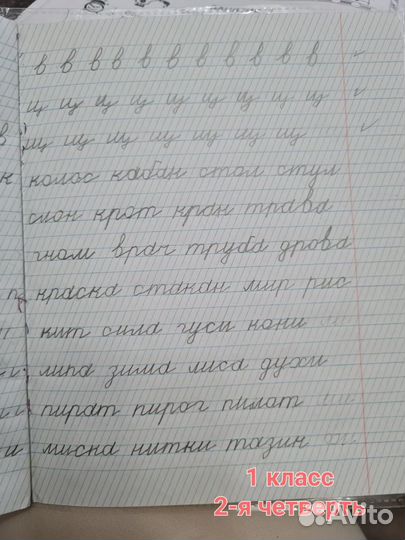 в в в в в в в в в в в
ц ц ц ц ц ц ц ц ц
щ щ щ щ щ щ щ
колос кабан стол стул
слон крот кран трава
гном врач труба дрова
краска стакан мир рис
кит сила гуси кони
липа зима лиса духи
пират пирог пилот
миска нитки тазик
1 класс
2-я четверть
Avito